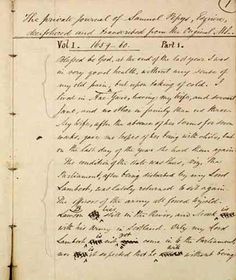 The private journal of Samuel Pepys, Esquire,
decifered and transcribed from the Original, Ms.
Vol 1. 1659-60. Part 1.
Blessed be God, at the end of the last year I was
in very good health, without any sense of
my old pain, but upon taking of cold. I
lived in Axe Yard, having my wife, and servant
Jane, and no other in family than us three.
My wife, after the absence of her terms for seven
weeks, gave me hopes of her being with child, but
on the last day of the year she had them again.
The condition of the State was thus, Viz. The
Parliament, after being disturbed by my Lord
Lambert, was lately returned to sit again.
The officers of the army all forced to yield.
Lawson still in the River, and Monk is
with his army in Scotland. Only my Lord
Lambert is not yet come in to the Parliament
nor is it expected that he will without being